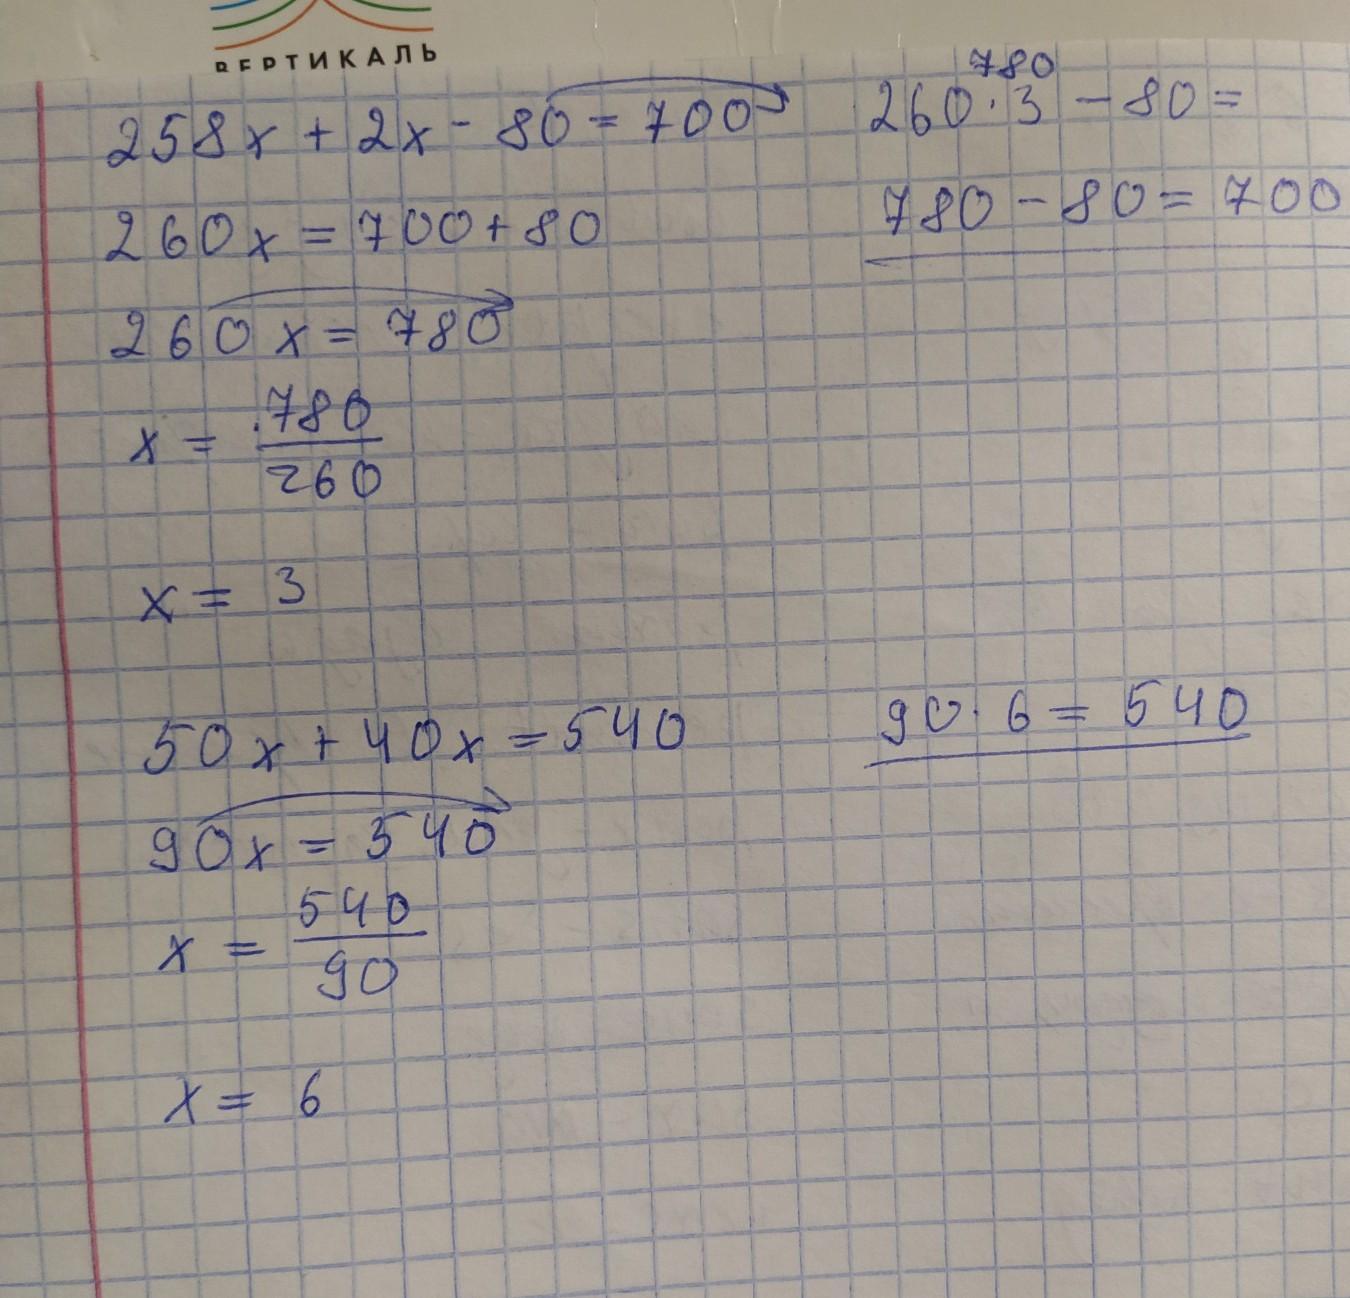 ВЕРТИКАЛЬ
258x + 2x - 80 = 700
260x = 700 + 80
260x = 780
x = 780/260
x = 3
780
260 · 3 - 80 =
780 - 80 = 700
50x + 40x = 540
90x = 540
x = 540/90
x = 6
90 · 6 = 540